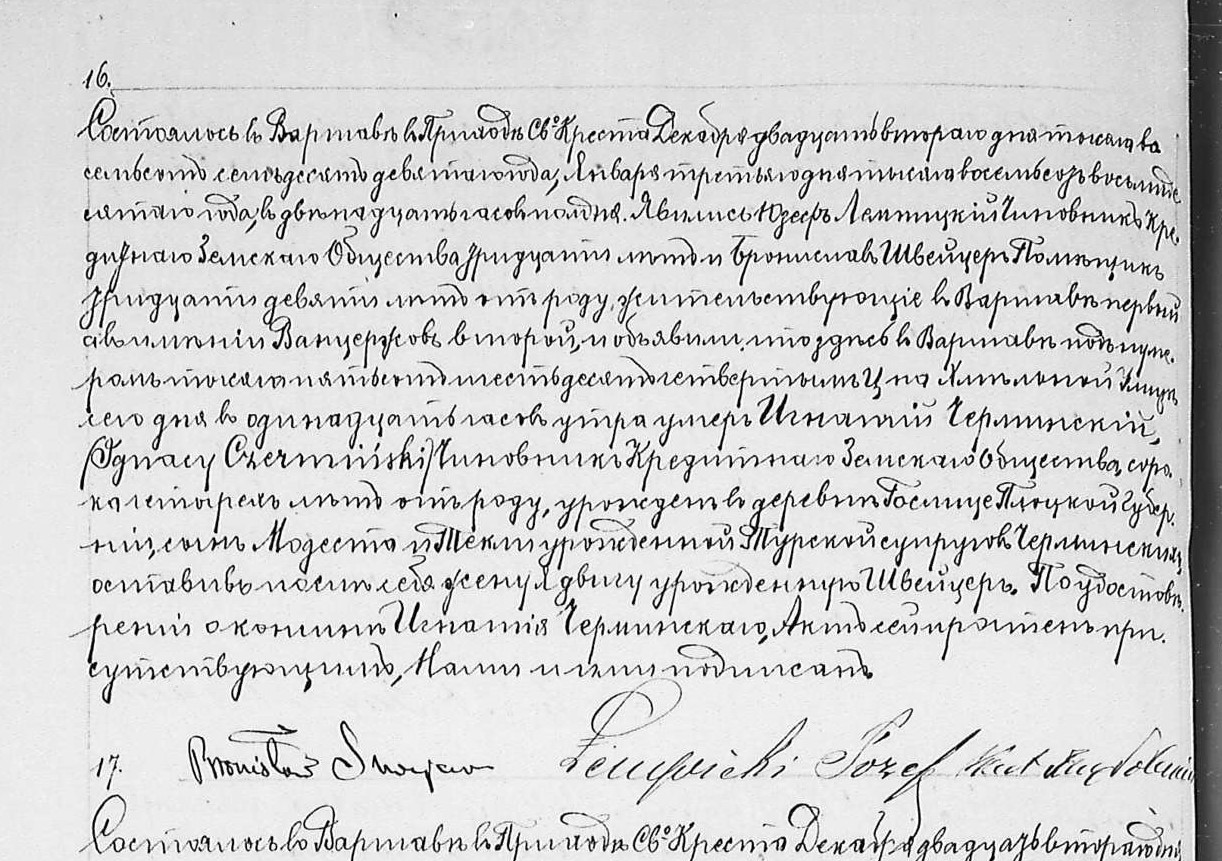 16.
Состоялось въ Варшавѣ въ Приходѣ Св.º Креста Декабря двадцать втораго дня тысяча во
семьсотъ семьдесятъ девятаго года, Января третьяго дня тысяча восемьсотъ восьмиде
сятаго года, въ двѣнадцать часовъ полдня. Явились Юзефъ Лемпицкій Чиновникъ Кре-
дитнаго Земскаго Общества тридцати лѣтъ и Брониславъ Швейцеръ Помѣщикъ
тридцати девяти лѣтъ отъ роду, жительствующіе въ Варшавѣ первый
а въ имѣніи второй, и объявили, что здѣсь въ Варшавѣ подъ нуме-
ромъ тысяча пятьсотъ шестьдесятъ четвертымъ Ц на Хмѣльной Улицѣ
сего дня въ одинадцать часовъ утра умеръ Игнатій Черминскій,
(Ignacy Czermiński) Чиновникъ Кредитнаго Земскаго Общества, соро-
ка четырехъ лѣтъ отъ роду, урожденъ въ деревнѣ Гослице Плоцкой Губер-
ніи, сынъ Модеста и Теклы урожденной Турской супруговъ Черминскихъ,
оставивъ послѣ себя жену Ядвигу урожденную Швейцеръ. По удостовѣ-
реніи о кончинѣ Игнатія Черминскаго, Актъ сей прочтенъ при-
сутствующимъ, Нами и ими подписанъ
Bronisław Lempicki Józef
17.
Состоялось въ Варшавѣ въ Приходѣ Св.º Креста Декабря двадцать втораго дня